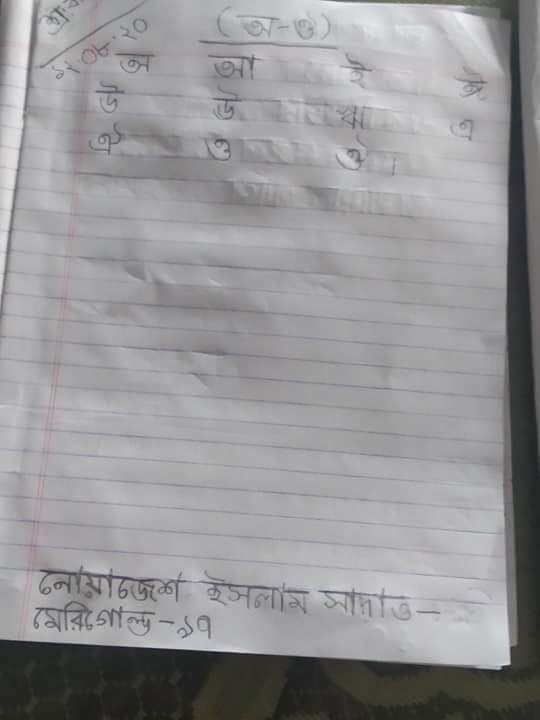 ১২.০৮.২০
(অ-ঔ)
অ আ ই ঈ
উ ঊ ঋ এ
ঐ ও ঔ।
নোয়াজেশ ইসলাম সাদাত-
মেরিগোল্ড-১৭